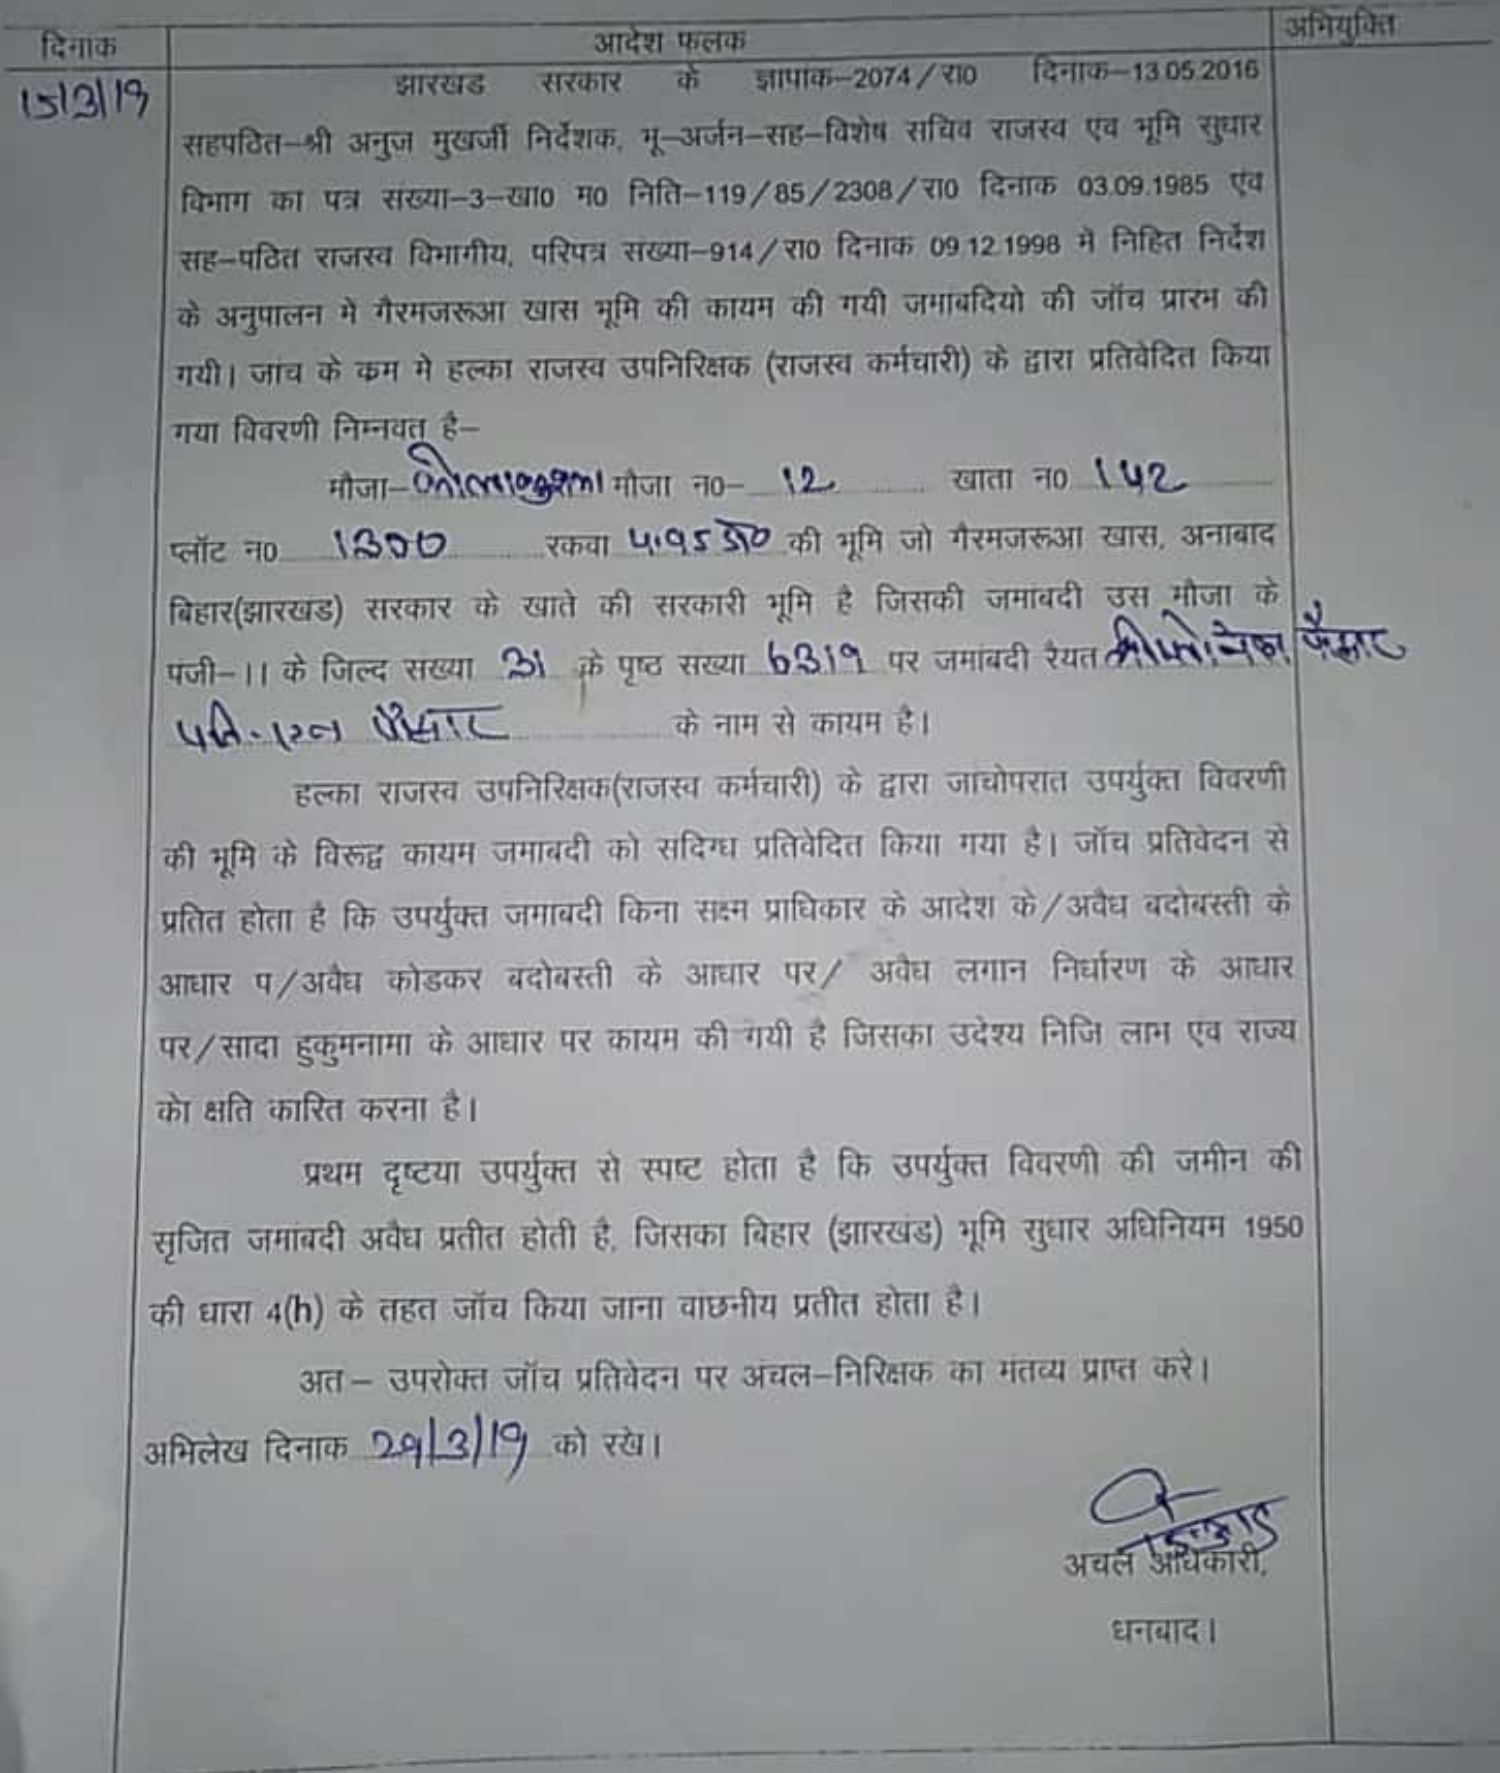 दिनाक आदेश फलक अभियुक्ति
15/3/19 झारखड सरकार के ज्ञापाक–2074/रा0 दिनाक–13.05.2016
सहपठित–श्री अनुज मुखर्जी निर्देशक, भू–अर्जन–सह–विशेष सचिव राजस्व एव भूमि सुधार
विभाग का पत्र सख्या–3–खा0 म0 निति–119/85/2308/रा0 दिनाक 03.09.1985 एव
सह–पठित राजस्व विभागीय, परिपत्र सख्या–914/रा0 दिनाक 09.12.1998 मे निहित निर्देश
के अनुपालन मे गैरमजरूआ खास भूमि की कायम की गयी जमाबदियो की जॉच प्रारभ की
गयी। जाच के कम मे हल्का राजस्व उपनिरिक्षक (राजस्व कर्मचारी) के द्वारा प्रतिवेदित किया
गया विवरणी निम्नवत् है–
मौजा– मौजा न0– 12 खाता न0 142
प्लॉट न0 1300 रकवा की भूमि जो गैरमजरूआ खास, अनाबाद
बिहार(झारखंड) सरकार के खाते की सरकारी भूमि है जिसकी जमांबदी उस मौजा के
पजी–II के जिल्द सख्या 31 के पृष्ठ सख्या 6319 पर जमांबदी रैयत
के नाम से कायम है।
हल्का राजस्व उपनिरिक्षक(राजस्व कर्मचारी) के द्वारा जाचोपरात उपर्युक्त विवरणी
की भूमि के विरूद्व कायम जमाबदी को सदिग्ध प्रतिवेदित किया गया है। जॉच प्रतिवेदन से
प्रतित होता है कि उपर्युक्त जमाबदी किना सक्ष्म प्राधिकार के आदेश के/अवैध बदोबस्ती के
आधार प/अवैध कोडकर बदोबस्ती के आधार पर/ अवैध लगान निर्धारण के आधार
पर/सादा हुकुमनामा के आधार पर कायम की गयी है जिसका उदेश्य निजि लाभ एव राज्य
को क्षति कारित करना है।
प्रथम दृष्टया उपर्युक्त से स्पष्ट होता है कि उपर्युक्त विवरणी की जमीन की
सृजित जमांबदी अवैध प्रतीत होती है, जिसका बिहार (झारखंड) भूमि सुधार अधिनियम 1950
की धारा 4(h) के तहत जॉच किया जाना वाछनीय प्रतीत होता है।
अत – उपरोक्त जॉच प्रतिवेदन पर अंचल–निरिक्षक का मतव्य प्राप्त करे।
अभिलेख दिनाक 29/3/19 को रखे।
अचल अधिकारी,
धनबाद।